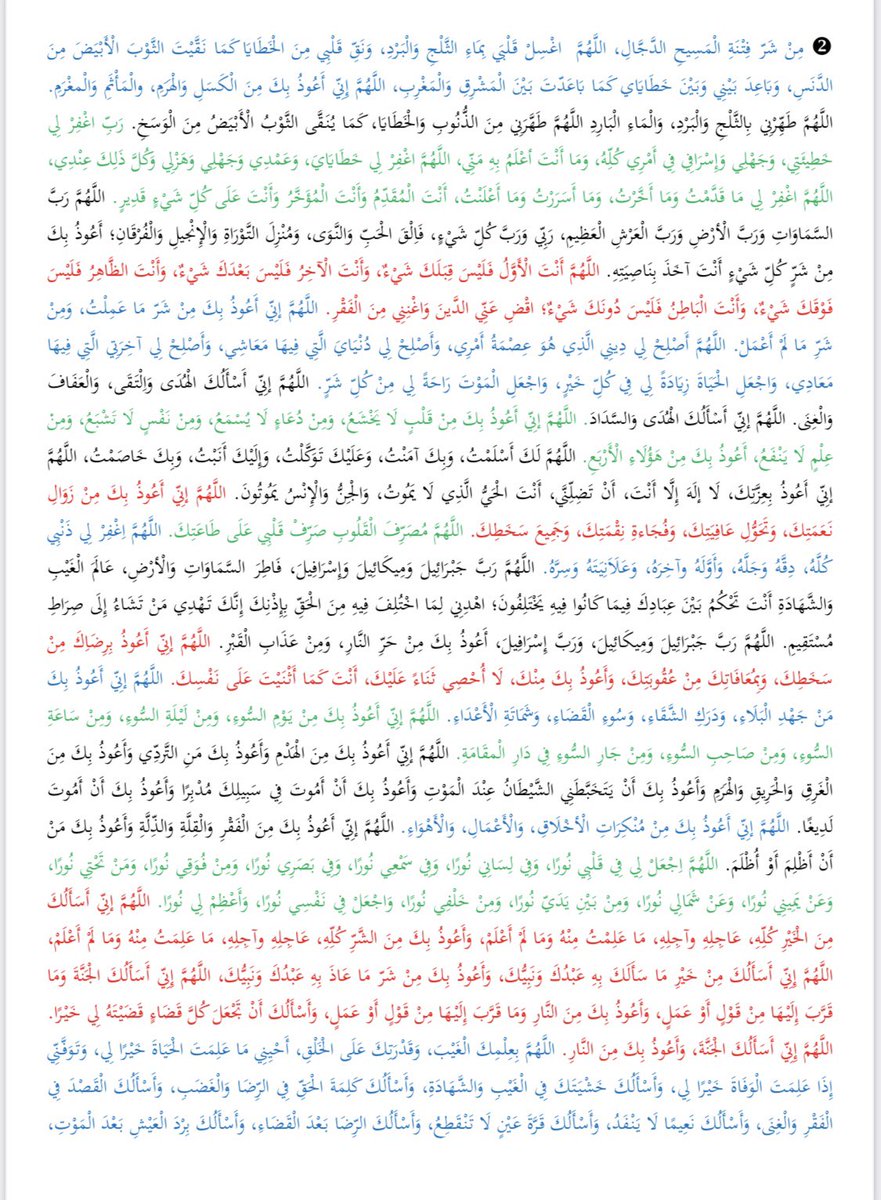 ❷ مِنْ شَرِّ فِتْنَةِ الْمَسِيحِ الدَّجَّالِ، اللَّهُمَّ اغْسِلْ قَلْبَي بِمَاءِ الثَّلْجِ وَالْبَرْدِ، وَنَقِّ قَلْبِي مِنَ الْخَطَايَا كَمَا نَقَّيْتَ الثَّوْبَ الْأَبْيَضَ مِنَ
الدَّنَسِ، وَبَاعِدَ بَيْنِي وَبَيْنَ خَطَايَاي كَمَا بَاعَدتَ بَيْنَ الْمَشْرِقِ وَالْمَغْرِبِ، اللَّهُمَّ إِنِّي أَعُوذُ بِكَ مِنَ الْكَسَلِ وَالْهَرَمِ، والْمَأْثَمِ وَالْمغْرَمِ.
اللَّهُمَّ طَهِّرْنِي بِالثَّلْجِ وَالْبَرْدِ، وَالْمَاءِ الْبَارِدِ اللَّهُمَّ طَهِّرَنِي مِنَ الذُّنُوبِ وَالْخَطَايَا، كَمَا يُنَقَّى الثَّوْبُ الْأَبْيَضُ مِنَ الْوَسَخِ. رَبِّ اغْفِرْ لِي
خَطِيئَتِي، وَجَهْلِي وَإِسْرَافِي فِي أَمْرِي كُلِّهُ، وَمَا أَنْتَ أَعْلَمُ بِهِ مَنِّي، اللَّهُمَّ اغْفِرْ لِي خَطَايَايَ، وَعَمْدِي وَجَهْلِي وَهَزْلِي وَكُلَّ ذَلِكَ عِنْدِي،
اللَّهُمَّ اغْفِرْ لِي مَا قَدَّمْتُ وَمَا أَخَّرْتُ، وَمَا أَسَرَرْتُ وَمَا أَعْلَنْتُ، أَنْتَ الْمُقَدِّمُ وَأَنْتَ الْمُؤَخَّرُ وَأَنْتَ عَلَى كُلِّ شَيْءٍ قَدِيرٍ. اللَّهُمَّ رَبَّ
السَّمَاوَاتِ وَرَبَّ الْأَرْضِ وَرَبَّ الْعَرْشِ الْعَظِيمِ، رَبِّي وَرَبَّ كُلِّ شَيْءٍ، فَاِلْقَ الْحَبِّ وَالنَّوَى، وَمُنْزِلَ التَّوْرَاةِ وَالْإِنْجِيلِ وَالْفُرْقَانِ؛ أَعُوذُ بِكَ
مِنْ شَرِّ كُلِّ شَيْءٍ أَنْتَ آخَذَ بِنَاصِيَتِهِ. اللَّهُمَّ أَنْتَ الْأَوَّلُ فَلَيْسَ قِبَلَكَ شَيْءٌ، وَأَنْتَ الْآخِرُ فَلَيْسَ بَعْدَكَ شَيْءٌ، وَأَنْتَ الظَّاهِرُ فَلَيْسَ
فَوْقَكَ شَيْءٌ، وَأَنْتَ الْبَاطِنُ فَلَيْسَ دُونَكَ شَيْءٌ؛ اقْضِ عَنِّي الدَّينَ وَاغْنِنِي مِنَ الْفَقْرِ. اللَّهُمَّ إِنِّي أَعُوذُ بِكَ مِنْ شَرِّ مَا عَمِلْتُ، وَمِنْ
شَرِّ مَا لَمْ أَعْمَلْ. اللَّهُمَّ أَصْلِحْ لِي دِينِي الَّذِي هُوَ عِصْمَةُ أَمْرِي، وَأَصْلِحْ لِي دُنْيَايَ الَّتِي فِيهَا مَعَاشِي، وَأَصْلِحْ لِي آخِرَتِي الَّتِي فِيهَا
مَعَادِي، وَاجْعَلِ الْحَيَاةَ زِيَادَةً لِي فِي كُلِّ خَيْرٍ، وَاجْعَلِ الْمَوْتَ رَاحَةً لِي مِنْ كُلِّ شَرٍّ. اللَّهُمَّ إِنِّي أَسْأَلُكَ الْهُدَى وَالِتُّقَى، وَالْعَفَافَ
وَالْغِنَى. اللَّهُمَّ إِنِّي أَسْأَلُكَ الْهُدَى وَالسَّدَادَ. اللَّهُمَّ إِنِّي أَعُوذُ بِكَ مِنْ قَلْبٍ لَا يَخْشَعُ، وَمِنْ دُعَاءٍ لَا يُسْمَعُ، وَمِنْ نَفْسٍ لَا تَشْبَعُ، وَمِنْ
عِلْمٍ لَا يَنْفَعُ، أَعُوذُ بِكَ مِنْ هَؤُلَاءِ الْأَرْبَعِ. اللَّهُمَّ لَكَ أَسْلَمْتُ، وَبِكَ آمَنْتُ، وَعَلَيْكَ تَوَكَّلْتُ، وَإِلَيْكَ أَنَبْتُ، وَبِكَ خَاصَمْتُ، اللَّهُمَّ
إِنِّي أَعُوذُ بِعِزَّتِكَ، لَا إِلهَ إِلَّا أَنْتَ، أَنْ تَضِلَّنِي، أَنْتَ الْحَيُّ الَّذِي لَا يَمُوتُ، وَالْجِنُّ وَالْإِنْسُ يَمُوتُونَ. اللَّهُمَّ إِنِّي أَعُوذُ بِكَ مِنْ زَوَالِ
نَعَمَتِكَ، وَتَحَوُّلِ عَافِيَتِكَ، وَفُجَاءَةِ نِقْمَتِكَ، وَجَمِيعَ سَخَطِكَ. اللَّهُمَّ مُصَرِّفَ الْقُلُوبِ صَرِّفْ قَلْبِي عَلَى طَاعَتِكَ. اللَّهُمَّ اِغْفِرْ لِي ذَنْبِي
كُلَّهُ، دِقَّهُ وَجَلَّهُ، وَأَوَّلَهُ وَآخِرَهُ، وَعَلَانِيَتَهُ وَسِرَّهُ. اللَّهُمَّ رَبَّ جَبْرَائِيلَ وَمِيكَائِيلَ وَإِسْرَافِيلَ، فَاطِرَ السَّمَاوَاتِ وَالْأَرْضِ، عَالَمَ الْغَيْبِ
وَالشَّهَادَةِ أَنْتَ تَحْكُمُ بَيْنَ عِبَادِكَ فِيمَا كَانُوا فِيهِ يَخْتَلِفُونَ؛ اهْدِنِي لِمَا اخْتُلِفَ فِيهِ مِنَ الْحَقِّ بِإِذْنِكَ إِنَّكَ تَهْدِي مَنْ تَشَاءُ إِلَى صِرَاطٍ
مُسْتَقِيمٍ. اللَّهُمَّ رَبَّ جَبْرَائِيلَ وَمِيكَائِيلَ، وَرَبَّ إِسْرَافِيلَ، أَعُوذُ بِكَ مِنْ حَرِّ النَّارِ، وَمِنْ عَذَابِ الْقَبْرِ. اللَّهُمَّ إِنِّي أَعُوذُ بِرِضَاكَ مِنْ
سَخَطِكَ، وَبِمُعَافَاتِكَ مِنْ عُقُوبَتِكَ، وَأَعُوذُ بِكَ مِنْكَ، لَا أُحْصِي ثَنَاءً عَلَيْكَ، أَنْتَ كَمَا أَثْنَيْتَ عَلَى نَفْسِكَ. اللَّهُمَّ إِنِّي أَعُوذُ بِكَ
مَنْ جَهْدِ الْبَلَاءِ، وَدَرَكِ الشَّقَاءِ، وَسُوءِ الْقَضَاءِ، وَشَمَاتَةِ الْأَعْدَاءِ. اللَّهُمَّ إِنِّي أَعُوذُ بِكَ مِنْ يَوْمِ السُّوءِ، وَمِنْ لَيْلَةِ السُّوءِ، وَمِنْ سَاعَةِ
السُّوءِ، وَمِنْ صَاحِبِ السُّوءِ، وَمِنْ جَارِ السُّوءِ فِي دَارِ الْمقَامَةِ. اللَّهُمَّ إِنِّي أَعُوذُ بِكَ مِنَ الْهَدْمِ وَأَعُوذُ بِكَ مَنِ التَّرَدِّي وَأَعُوذُ بِكَ مِنَ
الْغَرَقِ وَالْحَرِيقِ وَالْهَرَمِ وَأَعُوذُ بِكَ أَنْ يَتَخَبَّطَنِي الشَّيْطَانُ عِنْدَ الْمَوْتِ وَأَعُوذُ بِكَ أَنْ أَمُوتَ فِي سَبِيلِكَ مُدْبِرًا وَأَعُوذُ بِكَ أَنْ أَمُوتَ
لَدِيغًا. اللَّهُمَّ إِنِّي أَعُوذُ بِكَ مِنْ مُنْكِرَاتِ الْأَخْلَاقِ، وَالْأَعْمَالِ، وَالْأَهْوَاءِ. اللَّهُمَّ إِنِّي أَعُوذُ بِكَ مِنَ الْفَقْرِ وَالْقِلَّةِ وَالذِّلَّةِ وَأَعُوذُ بِكَ مَنْ
أَنْ أَظْلِمَ أَوْ أُظْلَمَ. اللَّهُمَّ اِجْعَلْ لِي فِي قَلْبِي نُورًا، وَفِي لِسَانِي نُورًا، وَفِي سَمْعِي نُورًا، وَفِي بَصَرِي نُورًا، وَمِنْ فُوَقِي نُورًا، وَمَنْ تَحْتِي نُورًا،
وَعَنْ يَمِينِي نُورًا، وَعَنْ شَمَالِي نُورًا، وَمِنْ بَيْنِ يَدَيّ نُورًا، وَمِنْ خَلْفِي نُورًا، وَاجْعَلْ فِي نَفْسِي نُورًا، وَأَعْظَمْ لِي نُورًا. اللَّهُمَّ إِنِّي أَسَأَلُكَ
مِنَ الْخَيْرِ كُلِّهِ، عَاجِلِهِ وآجِلِهِ، مَا عَلِمْتُ مِنْهُ وَمَا لَمْ أَعْلَمْ، وَأَعُوذُ بِكَ مِنَ الشَّرِّ كُلِّهِ، عَاجِلِهِ وَآجِلِهِ، مَا عَلِمَتُ مِنْهُ وَمَا لَمْ أَعْلَمْ،
اللَّهُمَّ إِنِّي أَسَأَلُكَ مِنْ خَيْرِ مَا سَأَلَكَ بِهِ عَبْدُكَ وَنَبِيُّكَ، وَأَعُوذُ بِكَ مِنْ شَرِّ مَا عَاذَ بِهِ عَبْدُكَ وَنَبِيُّكَ، اللَّهُمَّ إِنِّي أَسَأَلُكَ الْجَنَّةَ وَمَا
قَرَّبَ إِلَيْهَا مِنْ قَوْلٍ أَوْ عَمَلٍ، وَأَعُوذُ بِكَ مِنَ النَّارِ وَمَا قَرَّبَ إِلَيْهَا مِنْ قَوْلٍ أَوْ عَمَلٍ، وَأَسْأَلُكَ أَنْ تَجْعَلَ كُلَّ قَضَاءٍ قَضَيْتَهُ لِي خَيْرًا.
اللَّهُمَّ إِنِّي أَسَأَلُكَ الْجَنَّةَ، وَأَعُوذُ بِكَ مِنَ النَّارِ. اللَّهُمَّ بِعِلْمِكَ الْغَيْبَ، وَقَدْرَتِكَ عَلَى الْخَلْقِ، أَحْيِنِي مَا عَلِمَتَ الْحَيَاةَ خَيْرًا لِي، وَتَوَفَّنِّي
إِذَا عَلِمَتَ الْوَفَاةَ خَيْرًا لِي، وَأَسْأَلُكَ خَشْيَتَكَ فِي الْغَيْبِ وَالشَّهَادَةِ، وَأَسْأَلُكَ كَلِمَةَ الْحَقِّ فِي الرِّضَا وَالْغَضَبِ، وَأَسْأَلُكَ الْقَصْدَ فِي
الْفَقْرِ وَالْغِنَى، وَأَسْأَلُكَ نَعِيمًا لَا يَنْفَدُ، وَأَسْأَلُكَ قَرَّةَ عَيْنٍ لَا تَنْقَطِعُ، وَأَسْأَلُكَ الرِّضَا بَعْدَ الْقَضَاءِ، وَأَسْأَلُكَ بِرْدَ الْعَيْشِ بَعْدَ الْمَوْتِ،